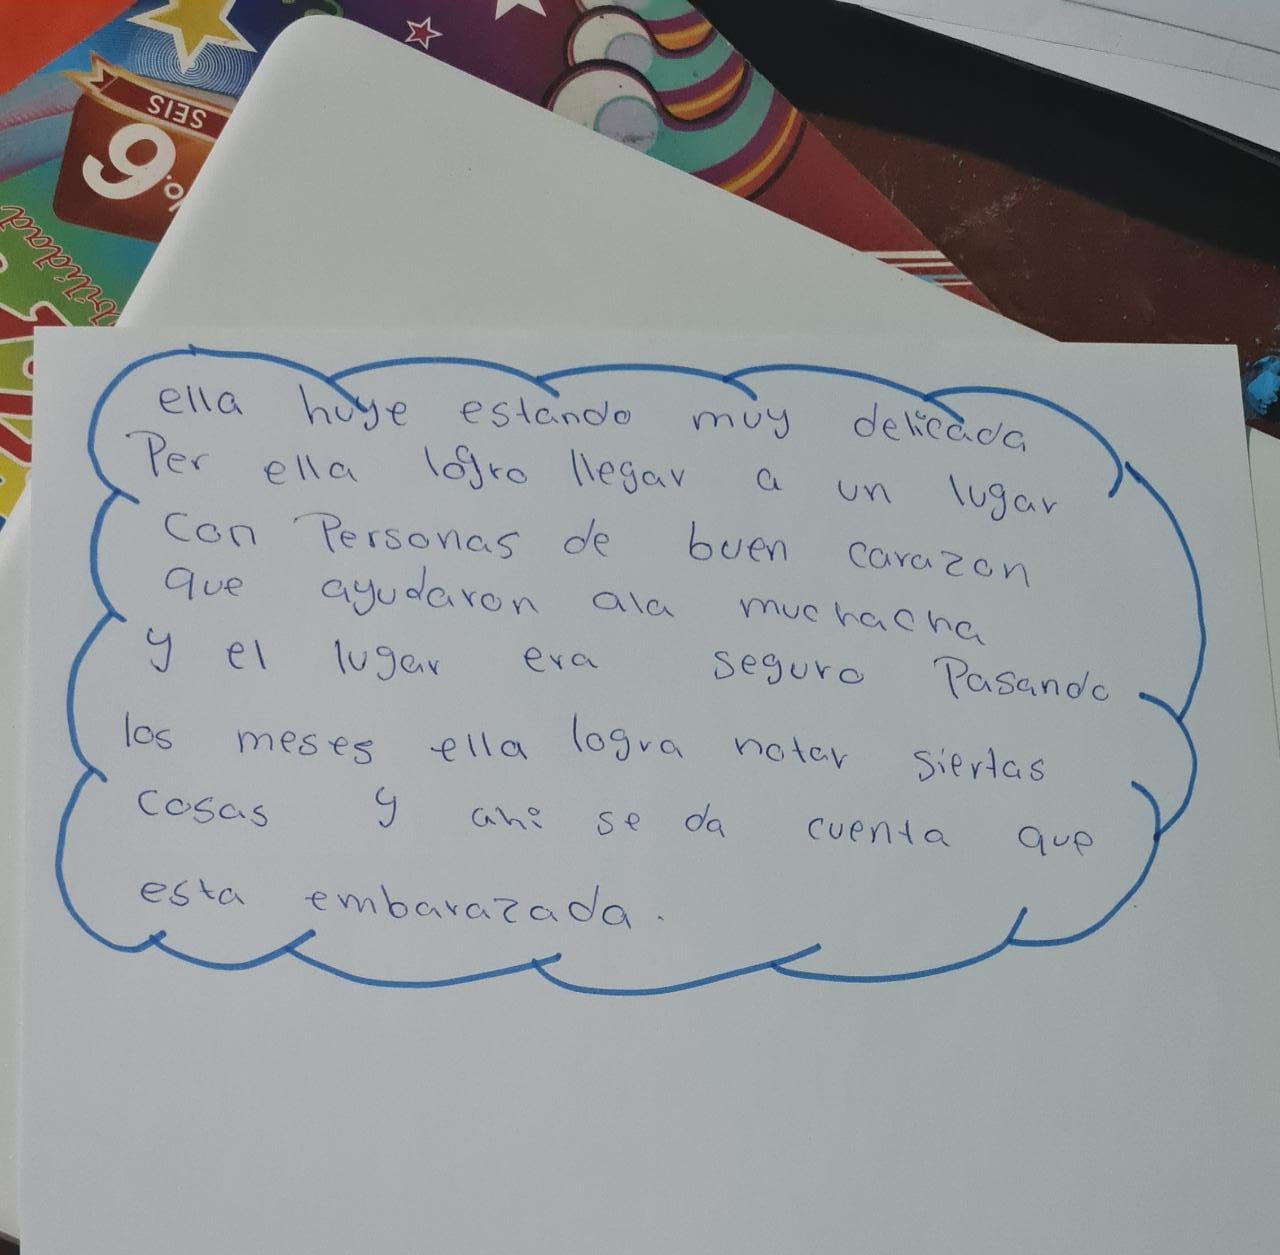 SEIS
No. 6
ella huye estando muy delicada
Per ella logro llegar a un lugar
con Personas de buen carazon
que ayudaron ala muchacha
y el lugar era seguro Pasando
los meses ella logra notar siertas
cosas y ahi se da cuenta que
esta embarazada.